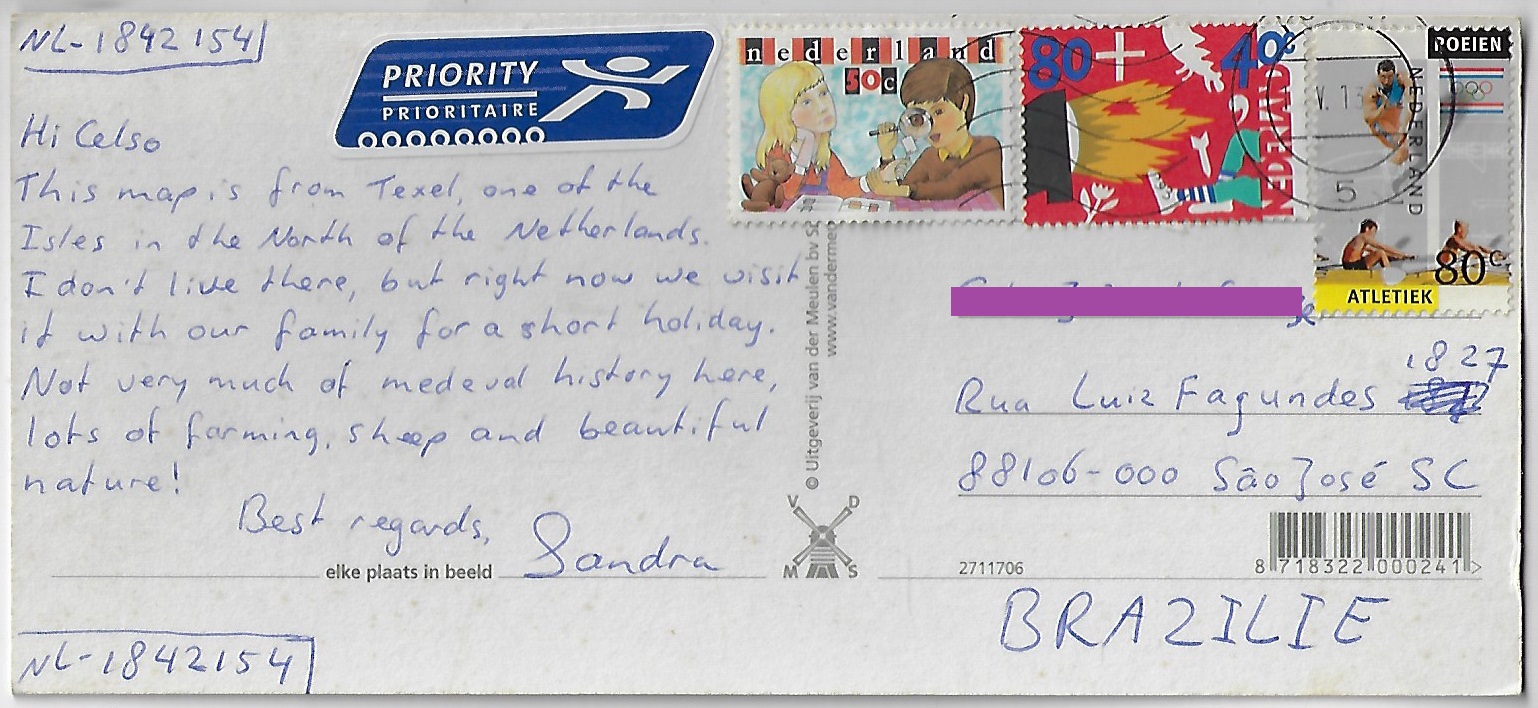 NL-1842154
PRIORITY
PRIORITAIRE
Hi Celso
This map is from Texel, one of the
Isles in the North of the Netherlands.
I don't live there, but right now we visit
it with our family for a short holiday.
Not very much of medeval history here,
lots of farming, sheep and beautiful
nature!
Best regards,
Sandra
elke plaats in beeld
NL-1842154
© Uitgeverij van der Meulen bv
www.vandermeu
V D
M S
nederland
50c
80 + 40c
ROEIEN
NEDERLAND
80c
ATLETIEK
V. 13
5
1827
Rua Luiz Fagundes
88106-000 São José SC
2711706
8 718322 000241 >
BRAZILIE